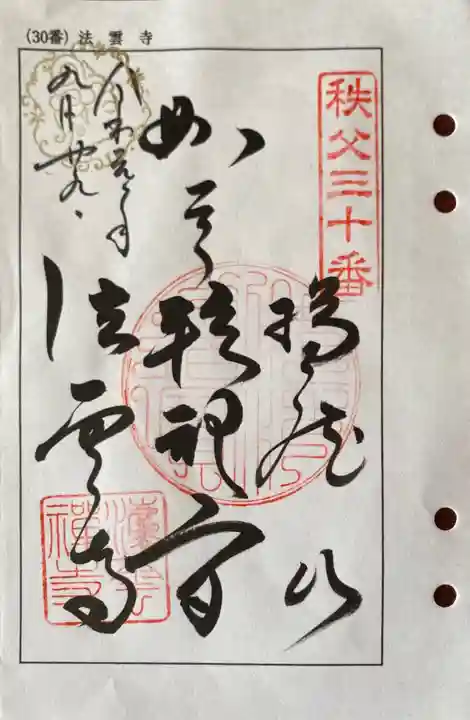 (30番) 法雲寺
秩父三十番
瑞龍山
如意輪観音
法雲寺
令和元年
九月廿九日